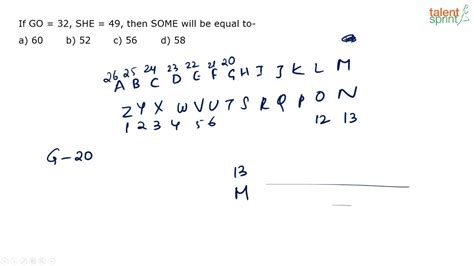 talent
sprint
If GO = 32, SHE = 49, then SOME will be equal to-
a) 60 b) 52 c) 56 d) 58
26 25 24 23 22 21 20
A B C D E F G H I J K L M
Z Y X W V U T S R Q P O N
1 2 3 4 5 6 12 13
G-20
13
M